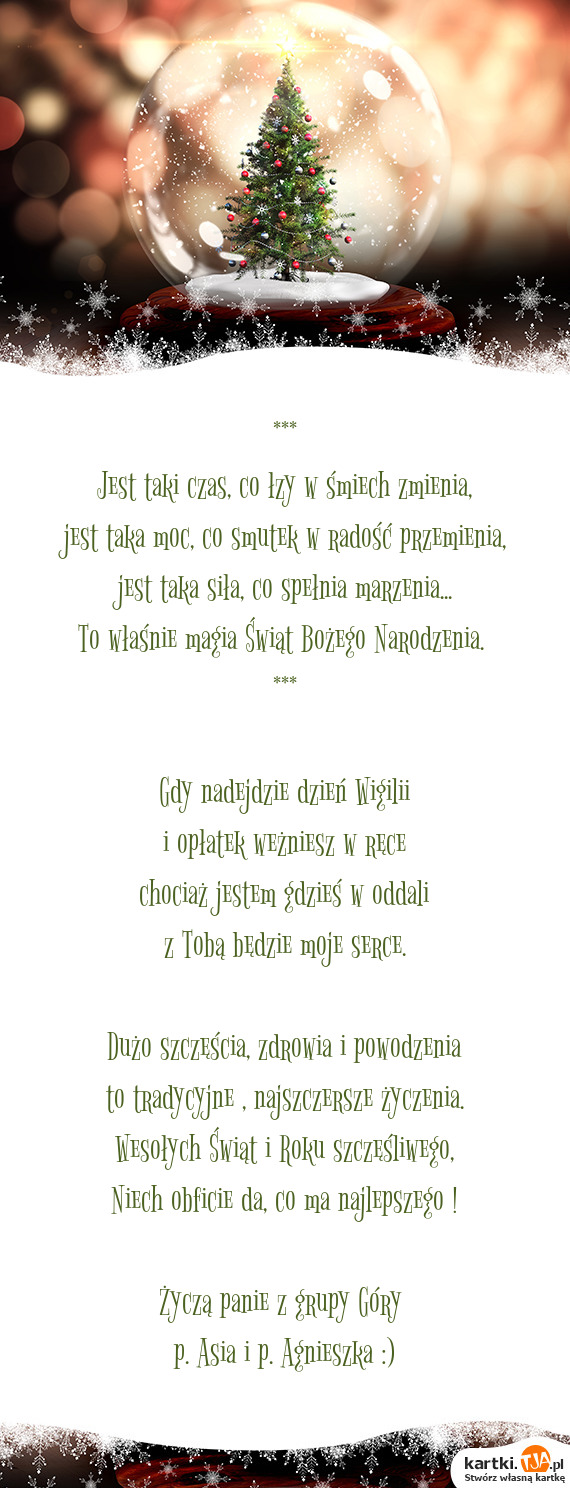 ***
Jest taki czas, co łzy w śmiech zmienia,
jest taka moc, co smutek w radość przemienia,
jest taka siła, co spełnia marzenia...
To właśnie magia Świąt Bożego Narodzenia.
***
Gdy nadejdzie dzień Wigilii
i opłatek weżniesz w ręce
chociaż jestem gdzieś w oddali
z Tobą będzie moje serce.
Dużo szczęścia, zdrowia i powodzenia
to tradycyjne , najszczersze życzenia.
Wesołych Świąt i Roku szczęśliwego,
Niech obficie da, co ma najlepszego !
Życzą panie z grupy Góry
p. Asia i p. Agnieszka :)
kartki.TJA.pl
Stwórz własną kartkę